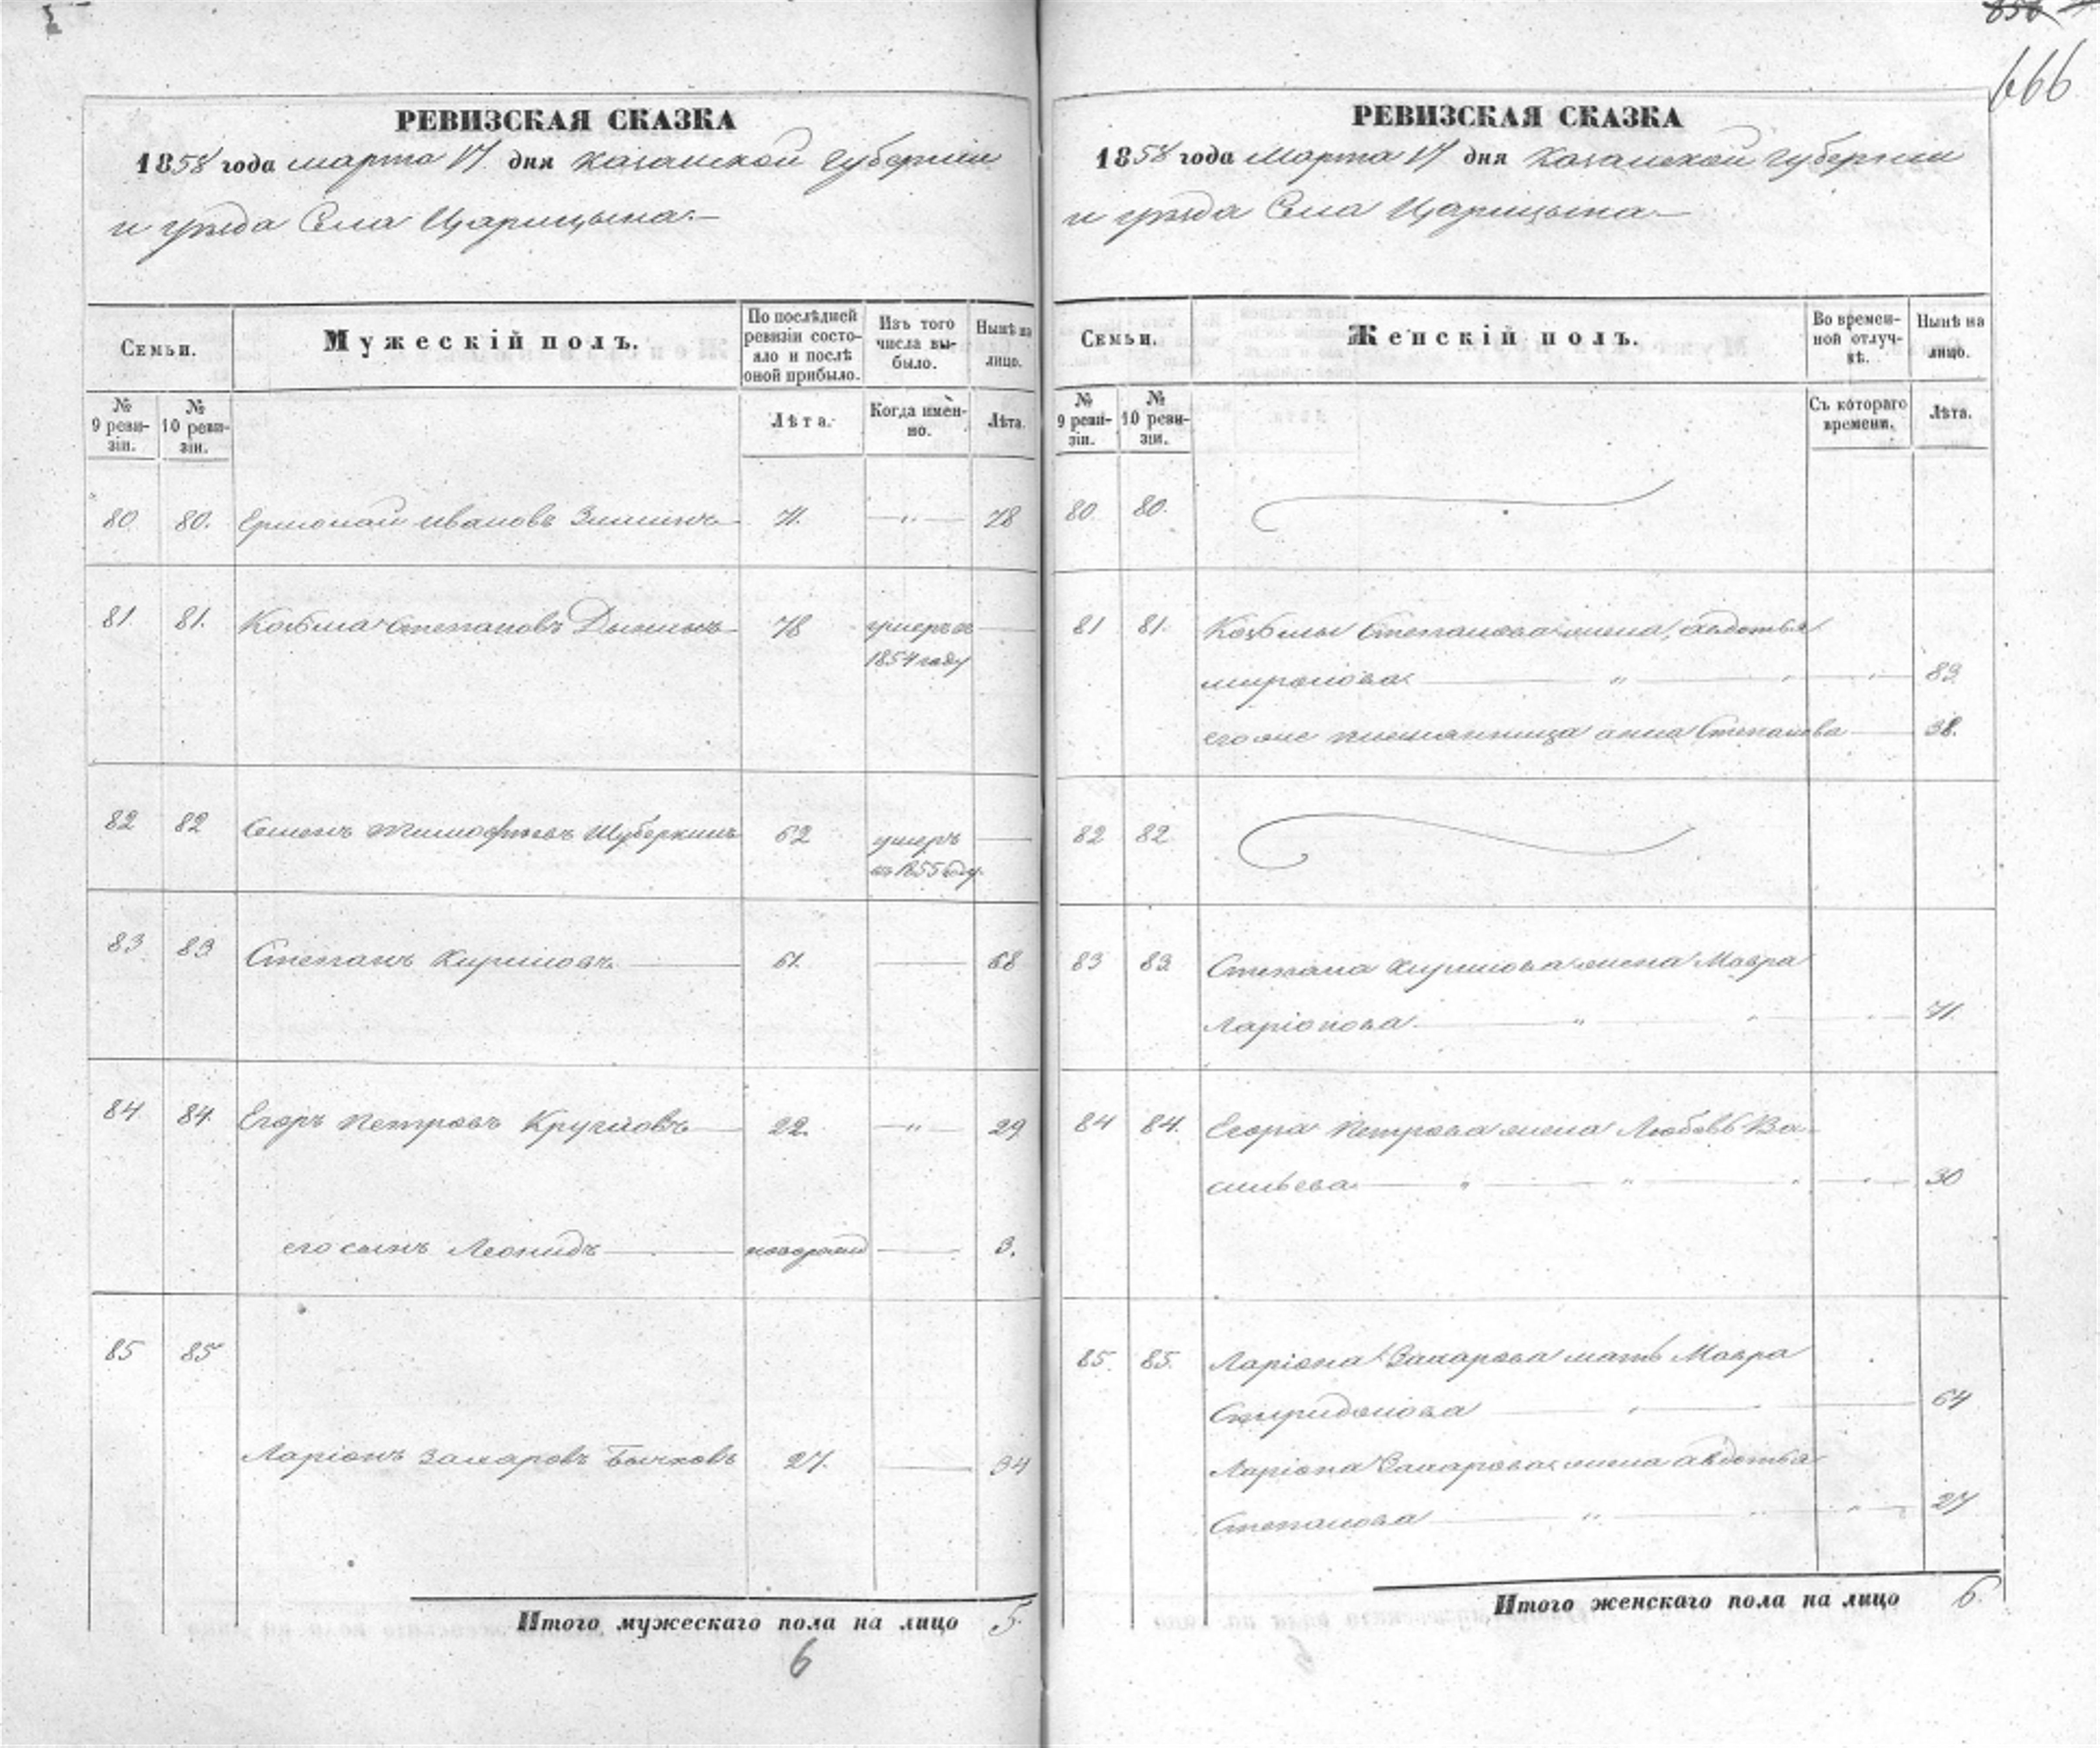 666
РЕВИЗСКАЯ СКАЗКА
1858 года марта 17 дня Казанской губернии
и уѣзда Села Царицына.
Семьи.
Мужескій полъ.
По послѣдней ревизіи состояло и послѣ оной прибыло.
Изъ того числа выбыло.
Нынѣ на лицо.
№ 9 ревизіи.
№ 10 ревизіи.
Лѣта.
Когда именно.
Лѣта.
80 80. Ермолай Ивановъ 71. — " — 78
81. 81. Козьма Степановъ 78 умеръ въ —
1854 году
82 82 Семенъ Тимофѣевъ Шуберкинъ 62 умеръ —
въ 1855 году
83 83 Степанъ Кириловъ 61. — 68
84 84. Егоръ Петровъ Кругловъ 22. — " — 29
его сынъ Леонидъ — новорожд — 3.
85 85
Ларіонъ Захаровъ Бычковъ 27. — 34
Итого мужескаго пола на лицо 5.
6
РЕВИЗСКАЯ СКАЗКА
1858 года Марта 17 дня Казанской губернии
и уѣзда Села Царицына
Семьи.
Женскій полъ.
Во временной отлучкѣ.
Нынѣ на лицо.
№ 9 ревизіи.
№ 10 ревизіи.
Съ котораго времени.
Лѣта.
80. 80.
81 81. Козьмы Степанова жена, авдотья
миронова — " — 83
его же племянница анна Степанова — 38.
82 82
83 83 Степана Кирилова жена Мавра
Ларіонова — " — 71.
84 84. Егора Петрова жена Любовь Ва-
сильева — " — " — 30
85. 85. Ларіона Захарова мать Мавра
Спиридонова — 64
Ларіона Захарова жена авдотья
Степанова — " — 27
Итого женскаго пола на лицо 6.